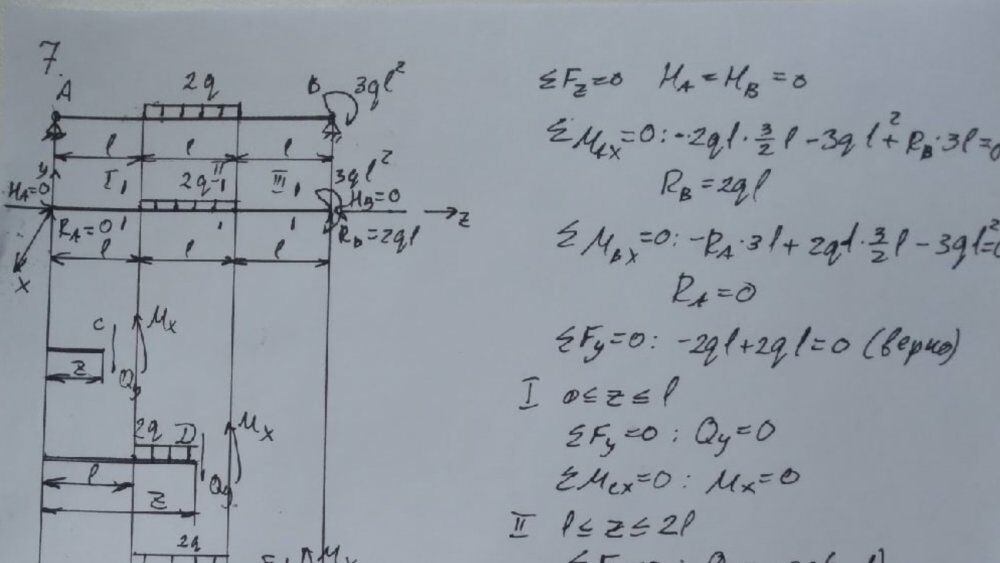 7.
A
2q
B
3ql²
l l l
y
I
2q
II
III
3ql²
H_A=0
H_B=0
z
R_A=0
R_B=2ql
l l l
x
c
M_x
z
Q_y
2q D
M_x
l
Q_y
z
2q
M_x
ΣF_z=0 H_A=H_B=0
ΣM_Ax=0: -2ql·3/2l-3ql²+R_B·3l=0
R_B=2ql
ΣM_Bx=0: -R_A·3l+2ql·3/2l-3ql²=0
R_A=0
ΣF_y=0: -2ql+2ql=0 (верно)
I 0≤z≤l
ΣF_y=0: Q_y=0
ΣM_cx=0: M_x=0
II l≤z≤2l